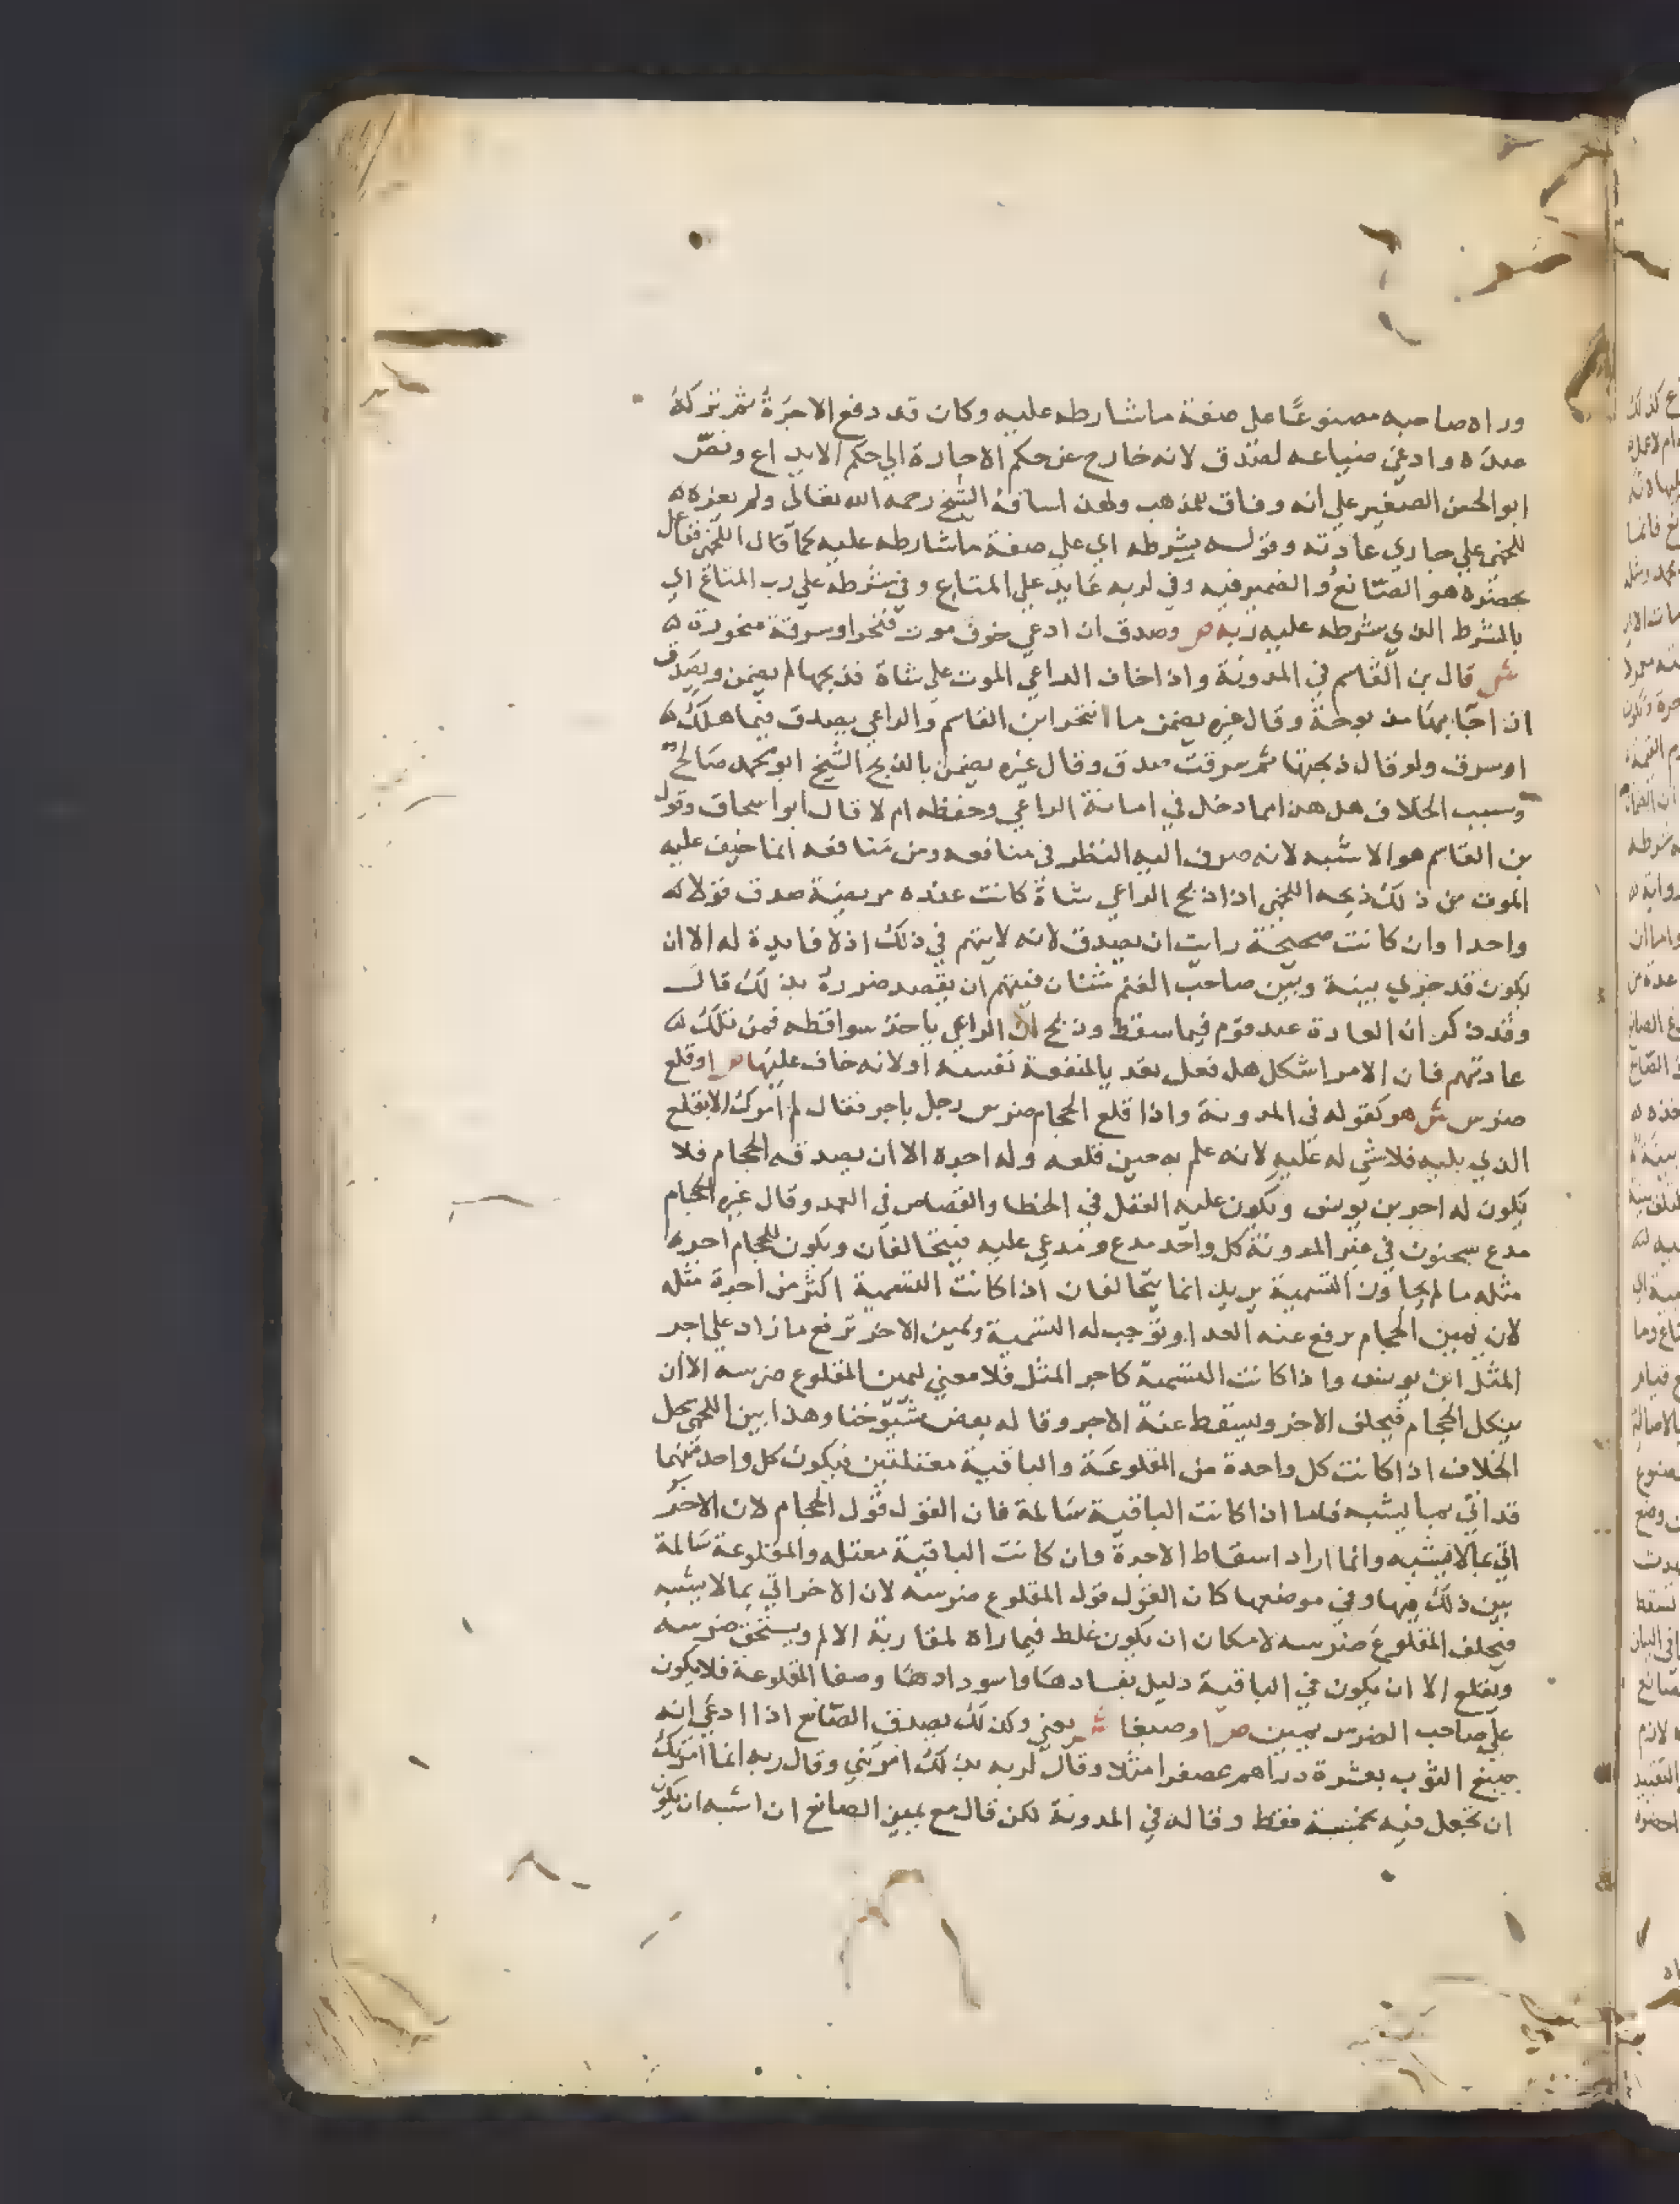 وراه صاحبه مصنوعًا على صفة ما شارطه عليه وكان قد دفع الاجرة ثم تركه
عنده وادعى ضياعه لصدق لانه خارج عن حكم الاجارة الي حكم الايداع ونص
ابو الحسن الصغير علي انه وفاق للمذهب ولهذا ساقه الشيخ رحمه الله تعالى ولم يعزه
للخمى علي جاري عادته وقوله بشرطه اي علي صفة ما شارطه عليه كما قال اللخمى فقال
بحضره هو الصانع والضمير فيه وفي لربه عايد علي المتاع وفي شرطه علي رب المتاع اي
بالشرط الذي شرطه عليه ربه ص وصدق ان ادعي خوف موت فنحر او سرقة منحوره
ش قال بن القاسم في المدونة واذا خاف الراعي الموت علي شاة فذبحها لم يضمن ويصدق
ان جا بها مذبوحة وقال غيره يضمن ما انتحر ابن القاسم والراعي يصدق فيما هلك
او سرق ولو قال ذبحتها ثم سرقت صدق وقال غيره يضمن بالذبح الشيخ ابو محمد صالح
وسبب الخلاف هل هذا مما دخل في امانة الراعي وحفظه ام لا قال ابو اسحاق وقول
بن القاسم هو الاشبه لانه صرف اليه النظر في منافعه ومن منافعه انما خيف عليه
الموت من ذلك ذبحه اللخمى اذا ذبح الراعي شاة كانت عنده مريضة صدق قولا
واحدا وان كانت صحيحة رايت ان يصدق لانه لا يتهم في ذلك اذ لا فايدة له الا ان
يكون قد جري بينه وبين صاحب الغنم شنئان فيتهم ان يقصد ضرره بذلك قال
وقد ذكر ان العادة عند قوم فيما سقط وذبح ان الراعي ياخذ سواقطه فمن تلك
عادتهم فان الامر اشكل هل فعل تعديا لمنفعة نفسه او لانه خاف عليها ص او قلع
ضرس ش هو كقوله في المدونة واذا قلع الحجام ضرس رجل باجر فقال لم امرك الا بقلع
الذي يليه فلا شي له عليه لانه علم به حين قلعه وله اجره الا ان يصدقه الحجام فلا
يكون له اجر بن يونس ويكون عليه العقل في الخطا والقصاص في العمد وقال غيره الحجام
مدع سحنون في غير المدونة كل واحد مدع ومدعي عليه فيتحالفان ويكون للحجام اجره
مثله ما لم يجاوز التسمية يريد انما يتحالفان اذا كانت التسمية اكثر من اجرة مثله
لان يمين الحجام يرفع عنه العدا وتوجب له التسمية ويمين الاخر ترفع ما زاد علي اجر
المثل ابن يونس واذا كانت التسمية كاجر المثل فلا معني ليمين المقلوع ضرسه الا ان
ينكل الحجام فيحلف الاخر ويسقط عنه الاجر وقاله بعض شيوخنا وهذا بين اللخمي محل
الخلاف اذا كانت كل واحدة من المقلوعة والباقية معتلتين فيكون كل واحد منهما
قد اتي بما يشبه فاما اذا كانت الباقية سالمة فان القول قول الحجام لان الاخر
اتي بما لا يشبه وانما اراد اسقاط الاجرة وان كانت الباقية معتله والمقلوعة سالمة
يبين ذلك فيها وفي موضعها كان القول قول المقلوع ضرسه لان الاخر اتي بما لا يشبه
فيحلف المقلوع ضرسه لامكان ان يكون غلط فيما راه لمقاربة الالم ويستحق ضرسه
ويقلع الا ان يكون في الباقية دليل بفسادها واسودادها وصفا المقلوعة فلا يكون
علي صاحب الضرس يمين ص او صبغا ش يعني وكذلك يصدق الصانع اذا ادعي انه
صبغ الثوب بعشرة دراهم عصفرا مثلا وقال لربه بذلك امرتني وقال ربه انما امرتك
ان تجعل فيه بخمسة فقط وقاله في المدونة لكن قال مع يمين الصانع ان اشبه ان يكون